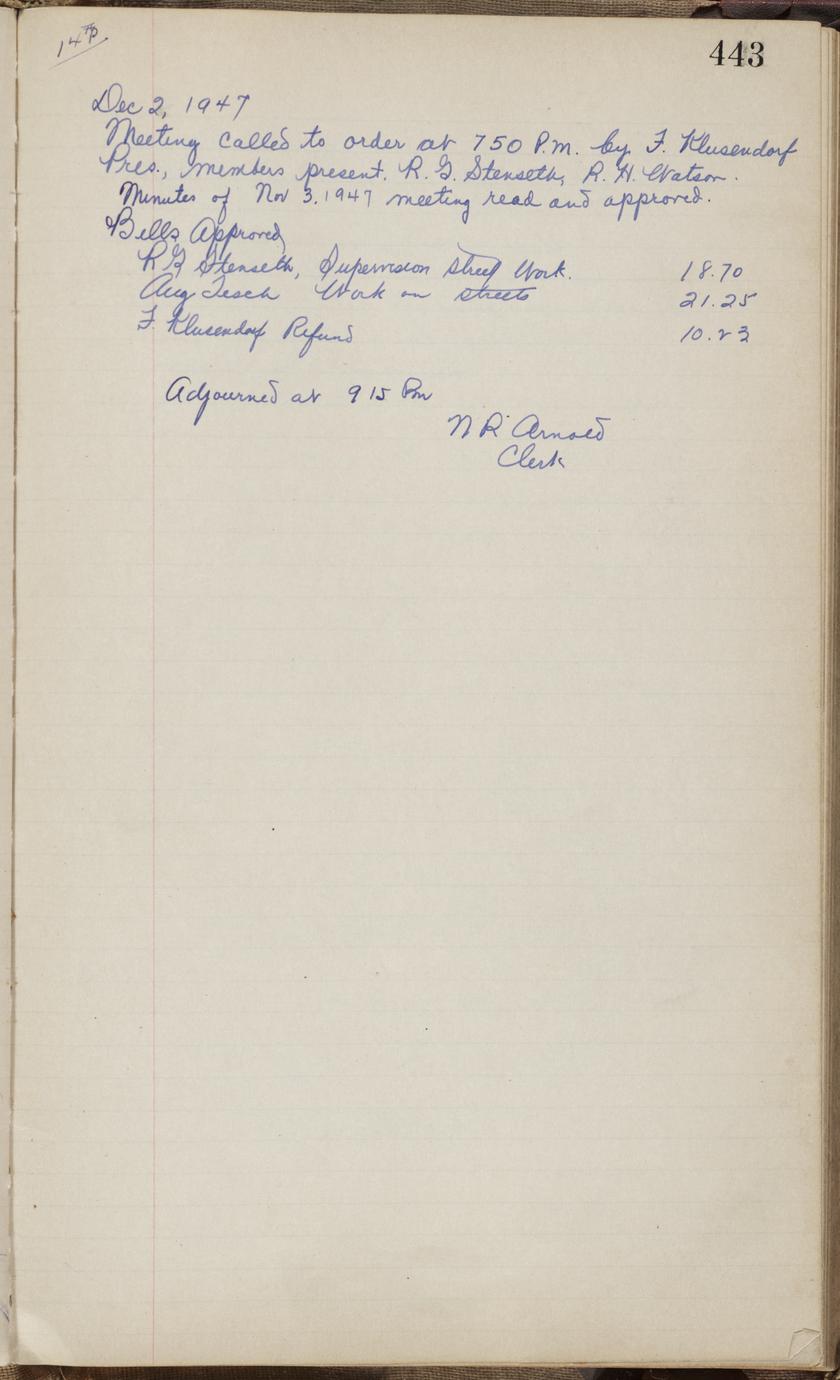 443
Dec 2, 1947
Meeting called to order at 750 P.M. by F. Klusendorf
Pres., members present. R. G. Stenseth, R. H. Watson.
Minutes of Nov 3, 1947 meeting read and approved.
Bills Approved
R G Stenseth, Supervision Street Work. 18.70
Aug Tesch Work on streets 21.25
F. Klusendorf Refund 10.23
Adjourned at 9 15 Pm
N R Arnold
Clerk